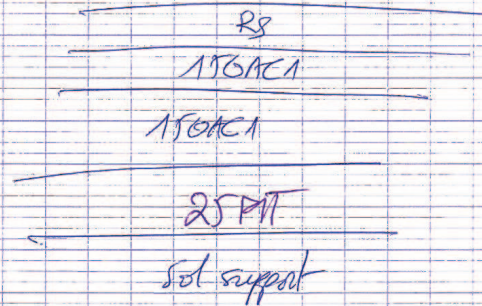 RS
15GAC1
15GAC1
25 PIT
Sol support